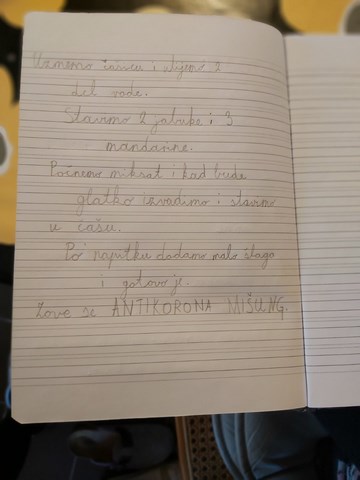 Uzmemo i ulijemo 2
del vode.
Stavimo 2 jabuke i 3
mandarine.
Počnemo miksat i kad bude
glatko izvadimo i stavimo
u čašu.
Po najutku dodamo malo šlaga
i gotovo je.
Zove se ANTIKORONA MIŠUNG.